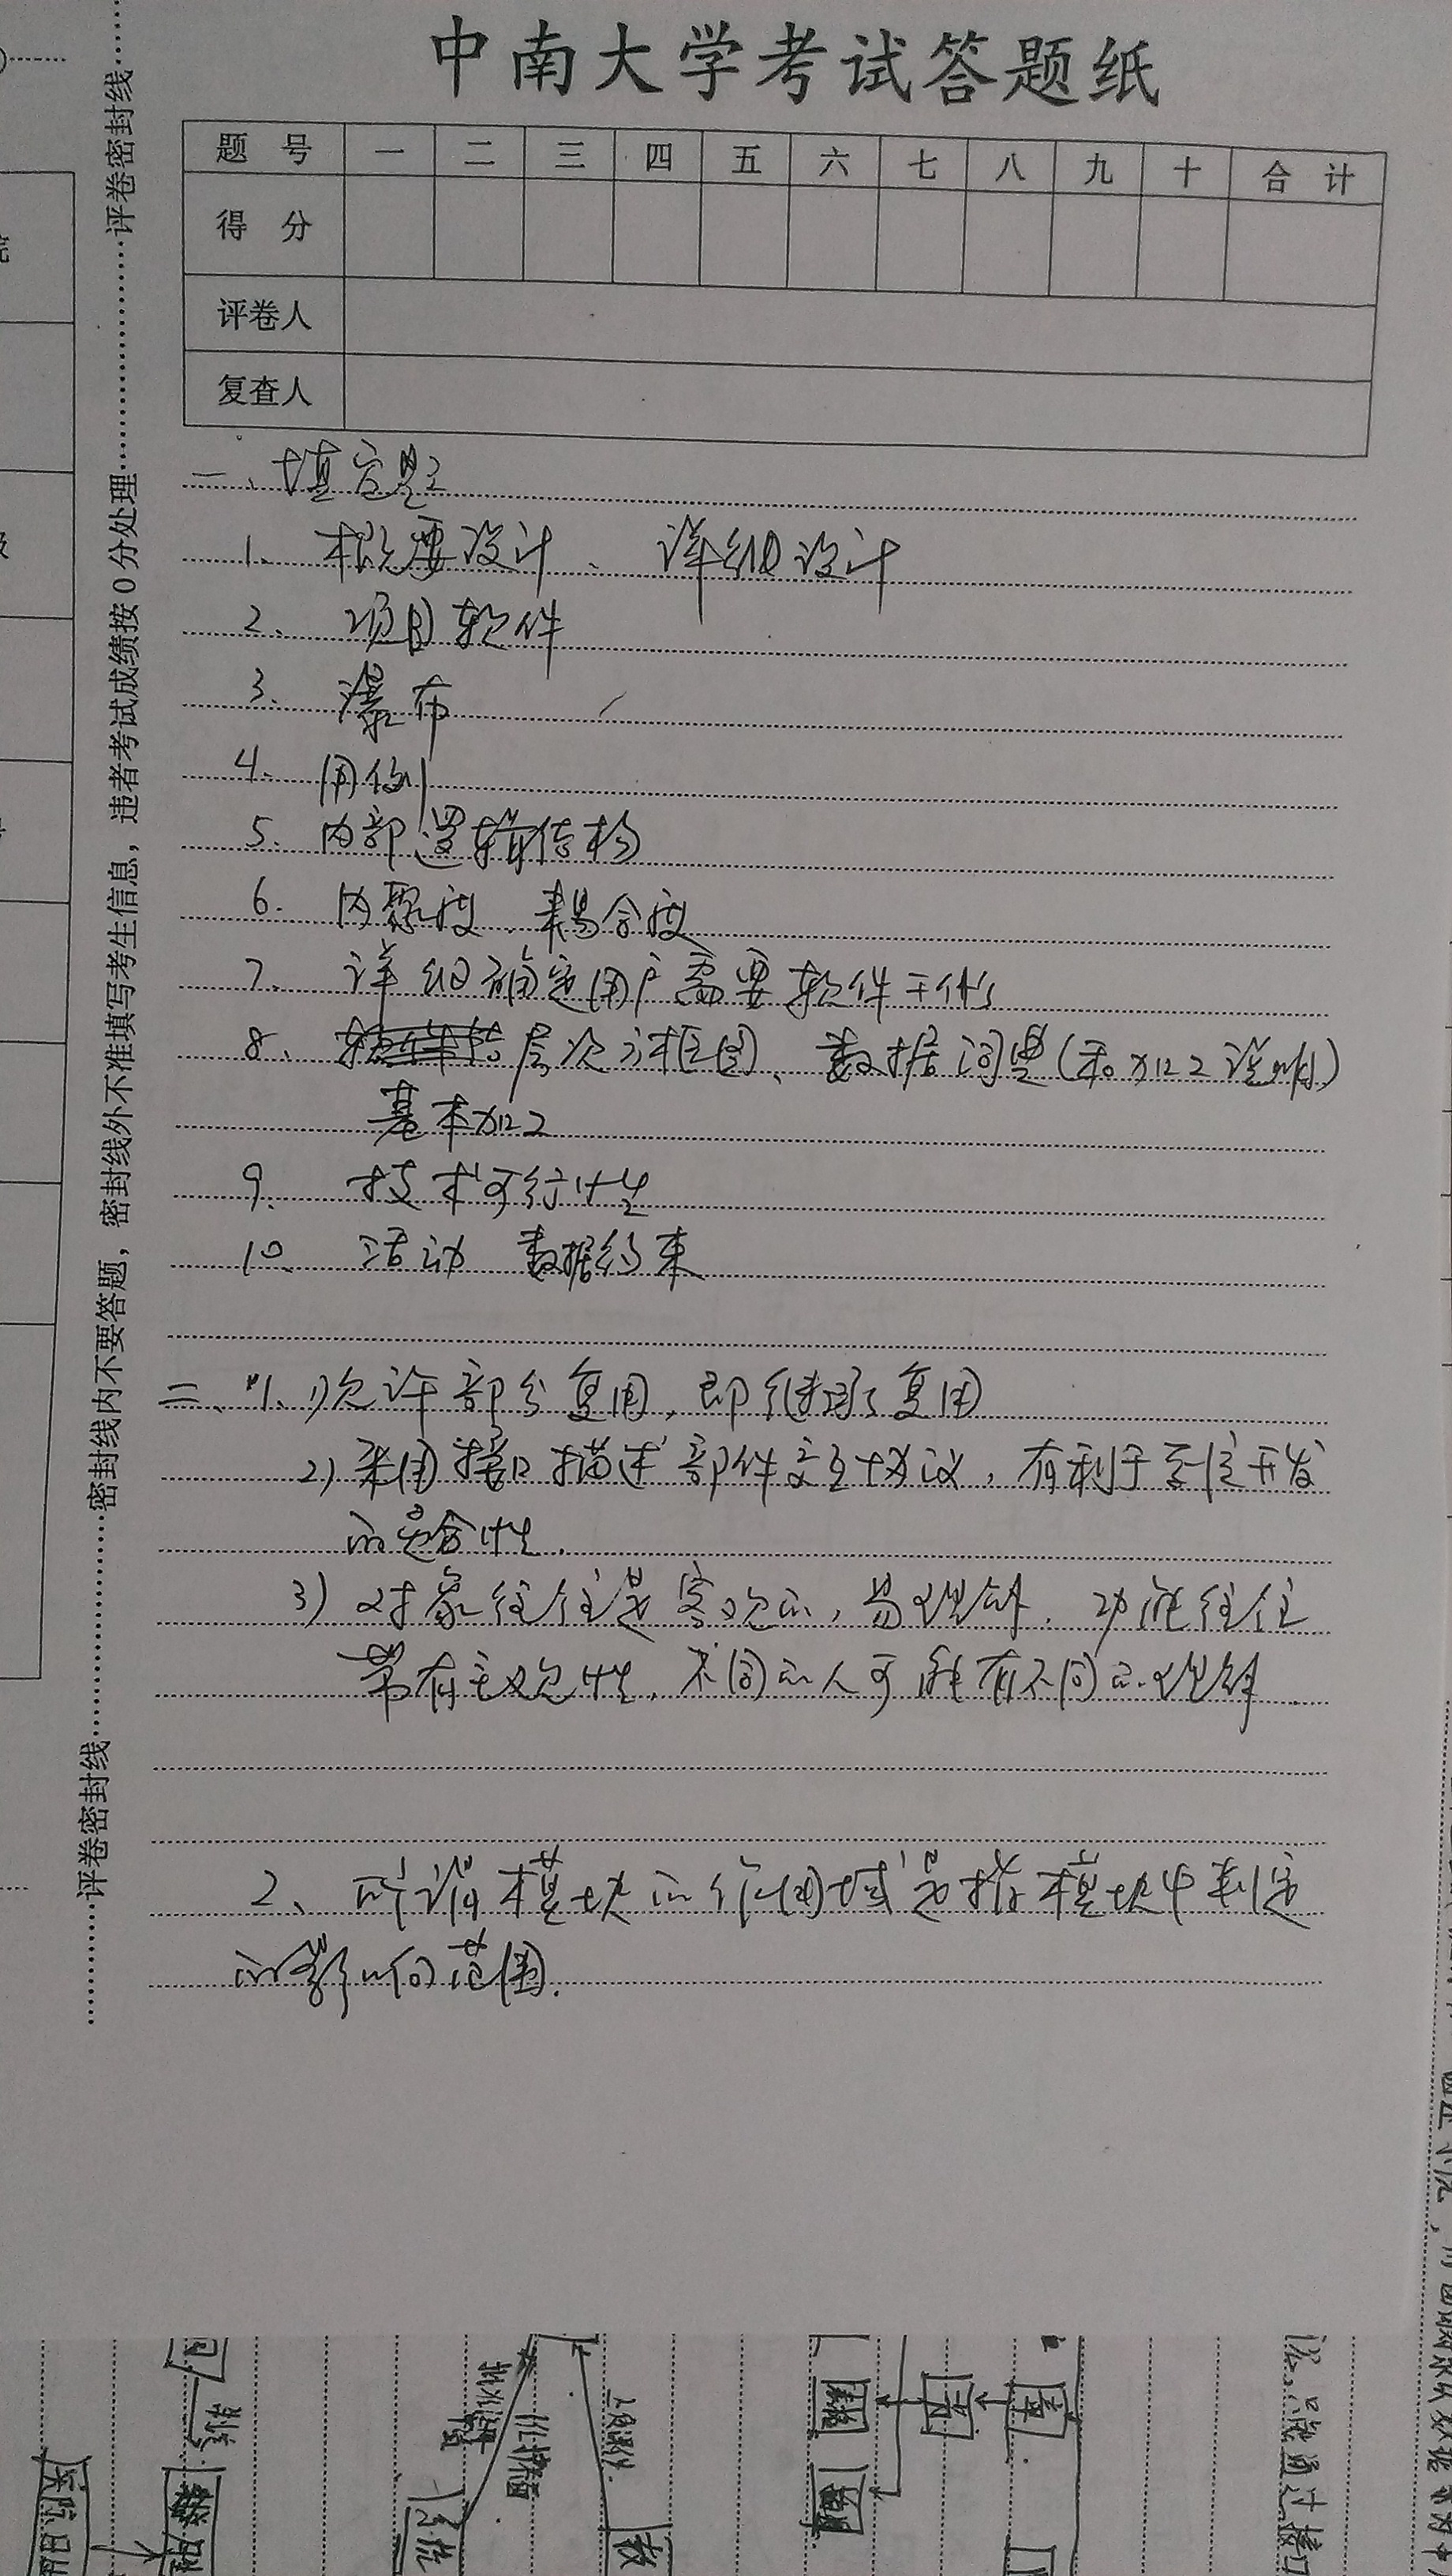 中南大学考试答题纸
题 号 一 二 三 四 五 六 七 八 九 十 合 计
得 分
评卷人
复查人
评卷密封线 密封线内不要答题，密封线外不准填写考生信息，违者考试成绩按0分处理 评卷密封线
一、填空题
1、概要设计、详细设计
2、项目软件
3、瀑布
4、用例
5、内部逻辑结构
6、内聚度、耦合度
7、详细确定用户需要软件干什么
8、层次方框图、数据词典(和加工说明)
基本加工
9、技术可行性
10、活动 数据约束
二、1、1)允许部分复用，即继承复用
2)采用接口描述部件交互协议，有利于系统开发
的适合性.
3)对象往往是客观的，易理解．功能往往
带有主观性，不同的人可能有不同的理解．
2、所谓模块的作用域是指模块中判定
的影响范围.
只能通过接口